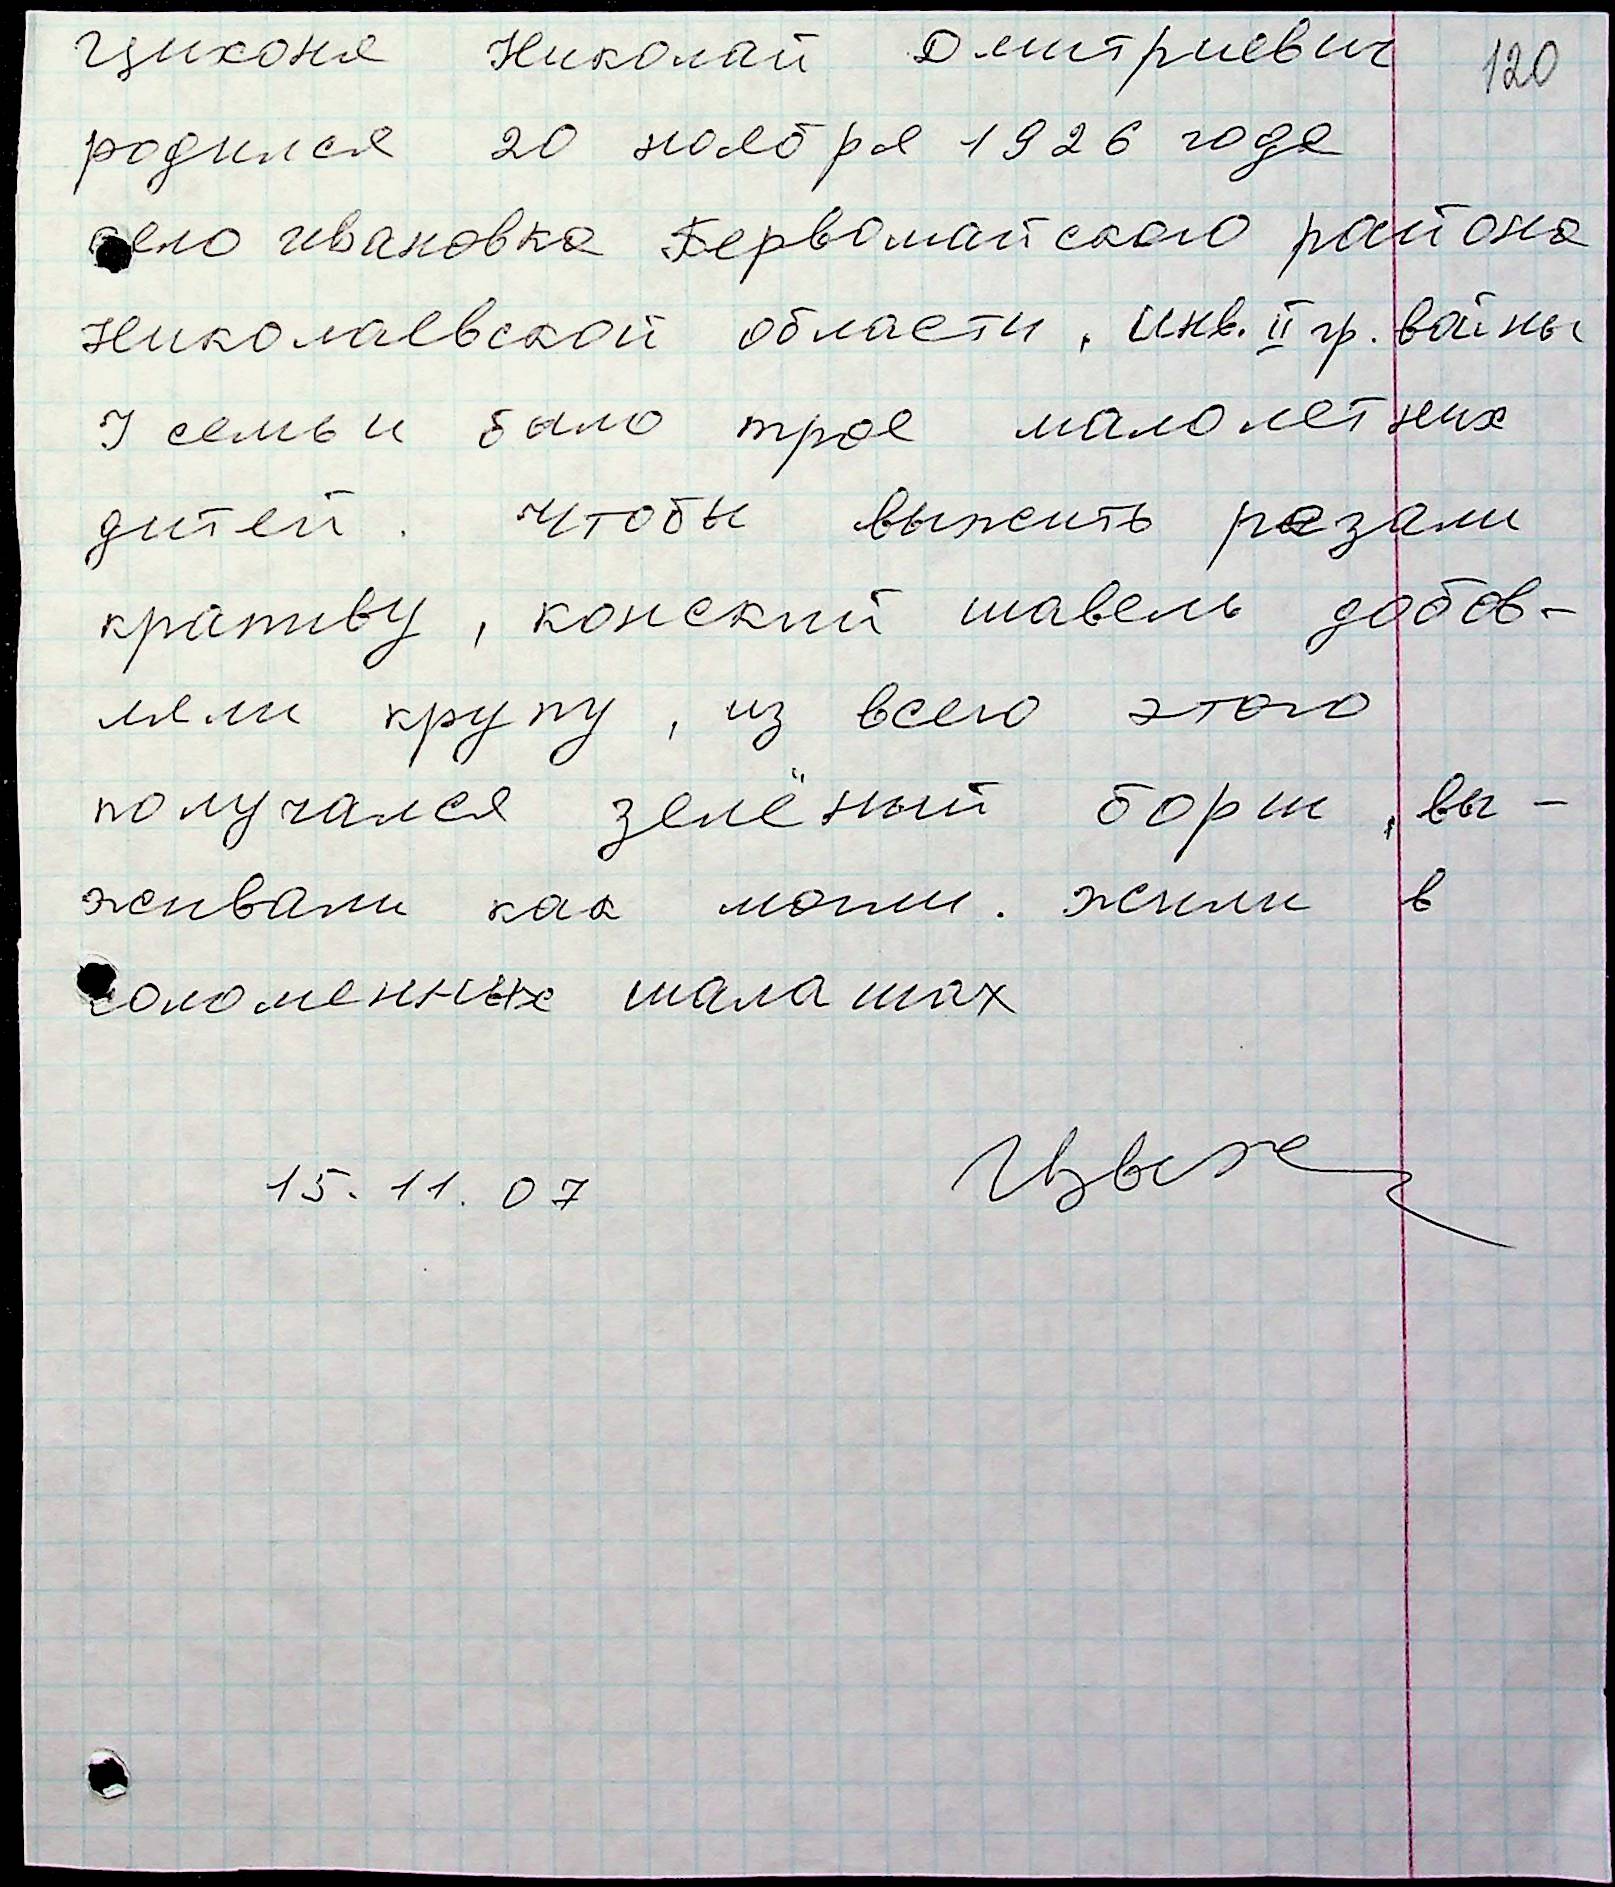 Цихоня Николай Дмитриевич 120
родился 20 ноября 1926 года
село Ивановка Первомайского района
Николаевской области, инв. II гр. войны
У семьи было трое малолетних
дитей. Чтобы выжить резали
крапиву, конский шавель добав-
ляли крупу, из всего этого
получался зелёный борщ, вы-
живали как могли. Жили в
соломенных шалашах
15.11.07